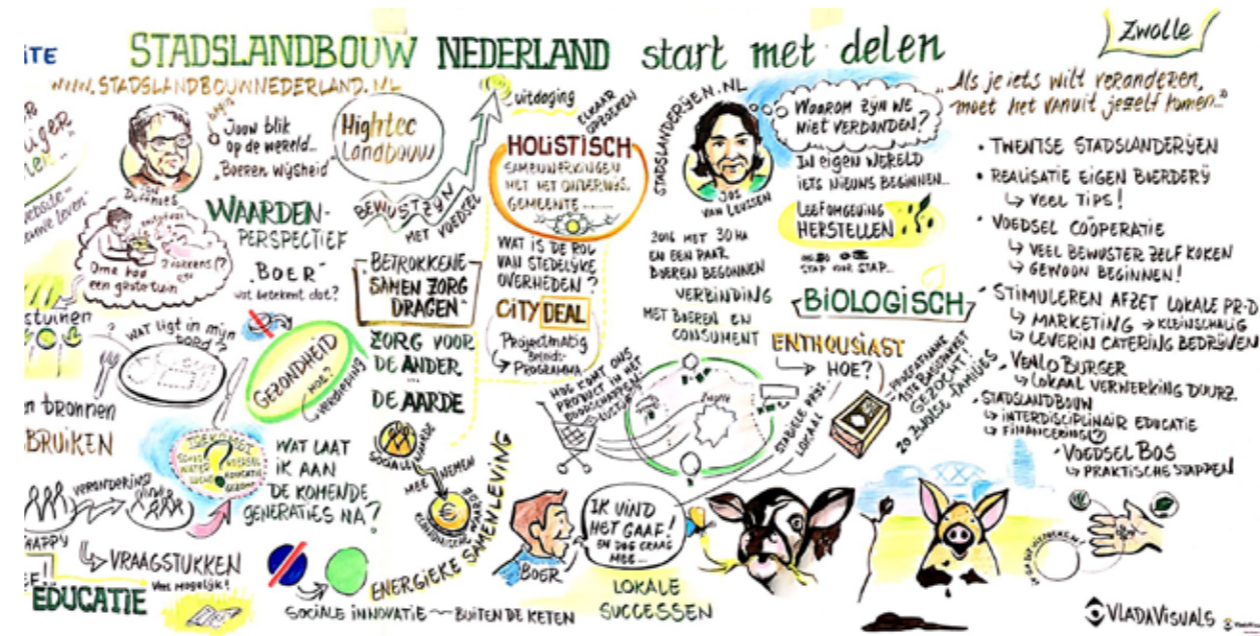 STADSLANDBOUW NEDERLAND start met delen
Zwolle
WWW.STADSLANDBOUWNEDERLAND.NL
Jouw blik
op de wereld...
"Boeren Wijsheid"
Hightec
Landbouw
uitdaging
ELKAAR
OPZOEKEN
HOLISTISCH
SAMENWERKINGEN
MET HET ONDERWIJS,
GEMEENTE
STADSLANDERIJEN.NL
JOS
VAN LEUSSEN
WAAROM ZIJN WE
NIET VERBONDEN?
IN EIGEN WERELD
IETS NIEUWS BEGINNEN...
LEEFOMGEVING
HERSTELLEN
STAP VOOR STAP...
"Als je iets wilt veranderen,
moet het vanuit jezelf komen..."
• TWENTSE STADSLANDERIJEN
• REALISATIE EIGEN BOERDERIJ
VEEL TIPS!
• VOEDSEL COÖPERATIE
VEEL BEWUSTER ZELF KOKEN
GEWOON BEGINNEN!
• STIMULEREN AFZET LOKALE PR
MARKETING → KLEINSCHALIG
LEVERIN CATERING BEDRIJVEN
• VENLO BURGER
LOKAAL VERWERKING DUURZ.
• STADSLANDBOUW
INTERDISCIPLINAIR EDUCATIE
FINANCIERING?
• VOEDSEL BOS
PRAKTISCHE STAPPEN
WAARDEN-
PERSPECTIEF
Oma had
een grote tuin
"BOER"
wat betekent dat?
BEWUSTZIJN
MET VOEDSEL
BETROKKENE
"SAMEN ZORG
DRAGEN"
ZORG VOOR
DE ANDER
...
DE AARDE
WAT IS DE ROL
VAN STEDELIJKE
OVERHEDEN?
CITY DEAL
Projectmatig
Beleids-
Programma
2016 MET 30 HA
EN EEN PAAR
BOEREN BEGONNEN
VERBINDING
MET BOEREN EN
CONSUMENT
BIOLOGISCH
ENTHOUSIAST
HOE?
GEZOCHT!
FAMILIES
HOE KOMT ONS
PRODUCT IN HET
STABIELE PRIJS
LOKAAL
stuinen
WAT ligt in mijn
bord?
GEZONDHEID
HOE?
verbinding
n bronnen
BRUIKEN
TOEKOMST
WATER
VOEDSEL
LUCHT
EDUCATIE
?
WAT LAAT
IK AAN
DE KOMENDE
GENERATIES NA?
SOCIALE WAARDE
MEE NEMEN
€
ECONOMISCHE
ENERGIEKE SAMENLEVING
verandering
VRAAGSTUKKEN
Veel mogelijk!
EDUCATIE
SOCIALE INNOVATIE — BUITEN DE KETEN
BOER
IK VIND
HET GAAF!
EN DOE GRAAG
MEE...
LOKALE
SUCCESSEN
VLADAVISUALS